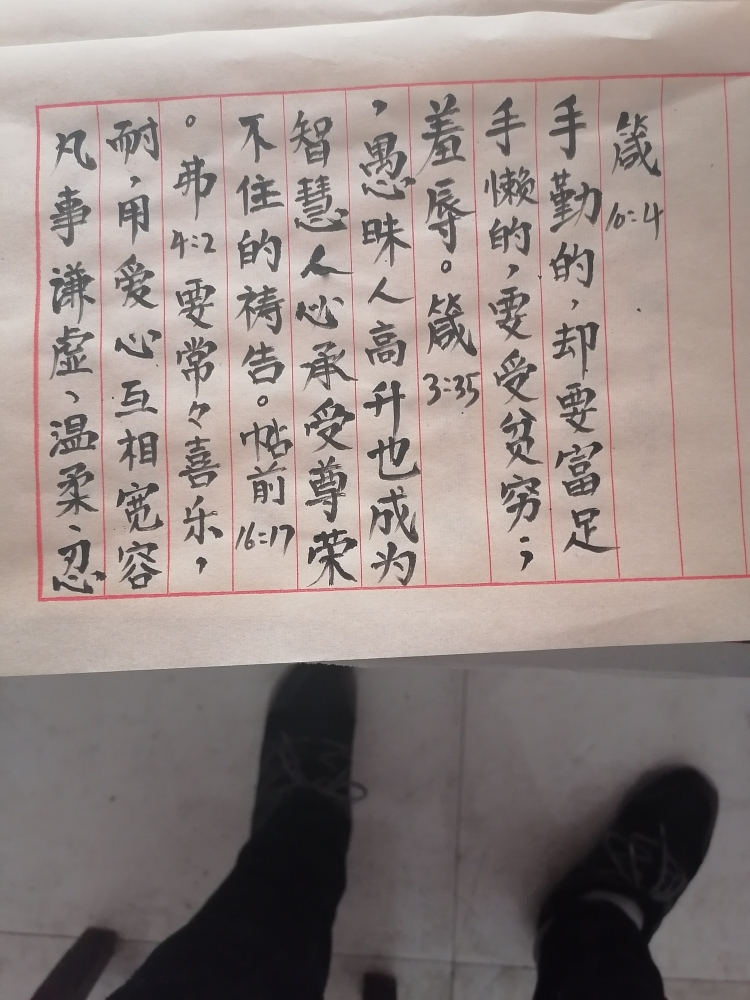 凡事谦虚、温柔、忍
耐，用爱心互相宽容
。弗4:2要常々喜乐，
不住的祷告。帖前16:17
智慧人必承受尊荣
，愚昧人高升也成为
羞辱。箴3:35
手懒的，要受贫穷；
手勤的，却要富足
箴10:4.